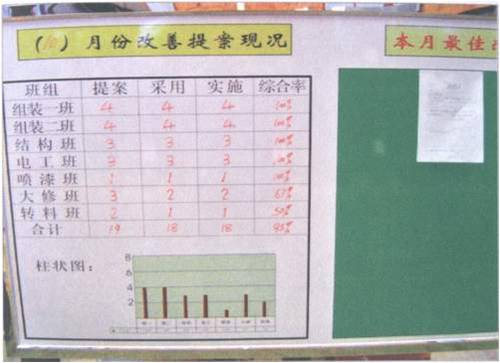 (10)月份改善提案现况
本月最佳
班组 提案 采用 实施 综合率
组装一班 4 4 4 100%
组装二班 4 4 4 100%
结构班 3 3 3 100%
电工班 3 3 3 100%
喷漆班 1 1 1 100%
大修班 3 2 2 67%
转料班 2 1 1 50%
合计 19 18 18 95%
柱状图：
8
6
4
2